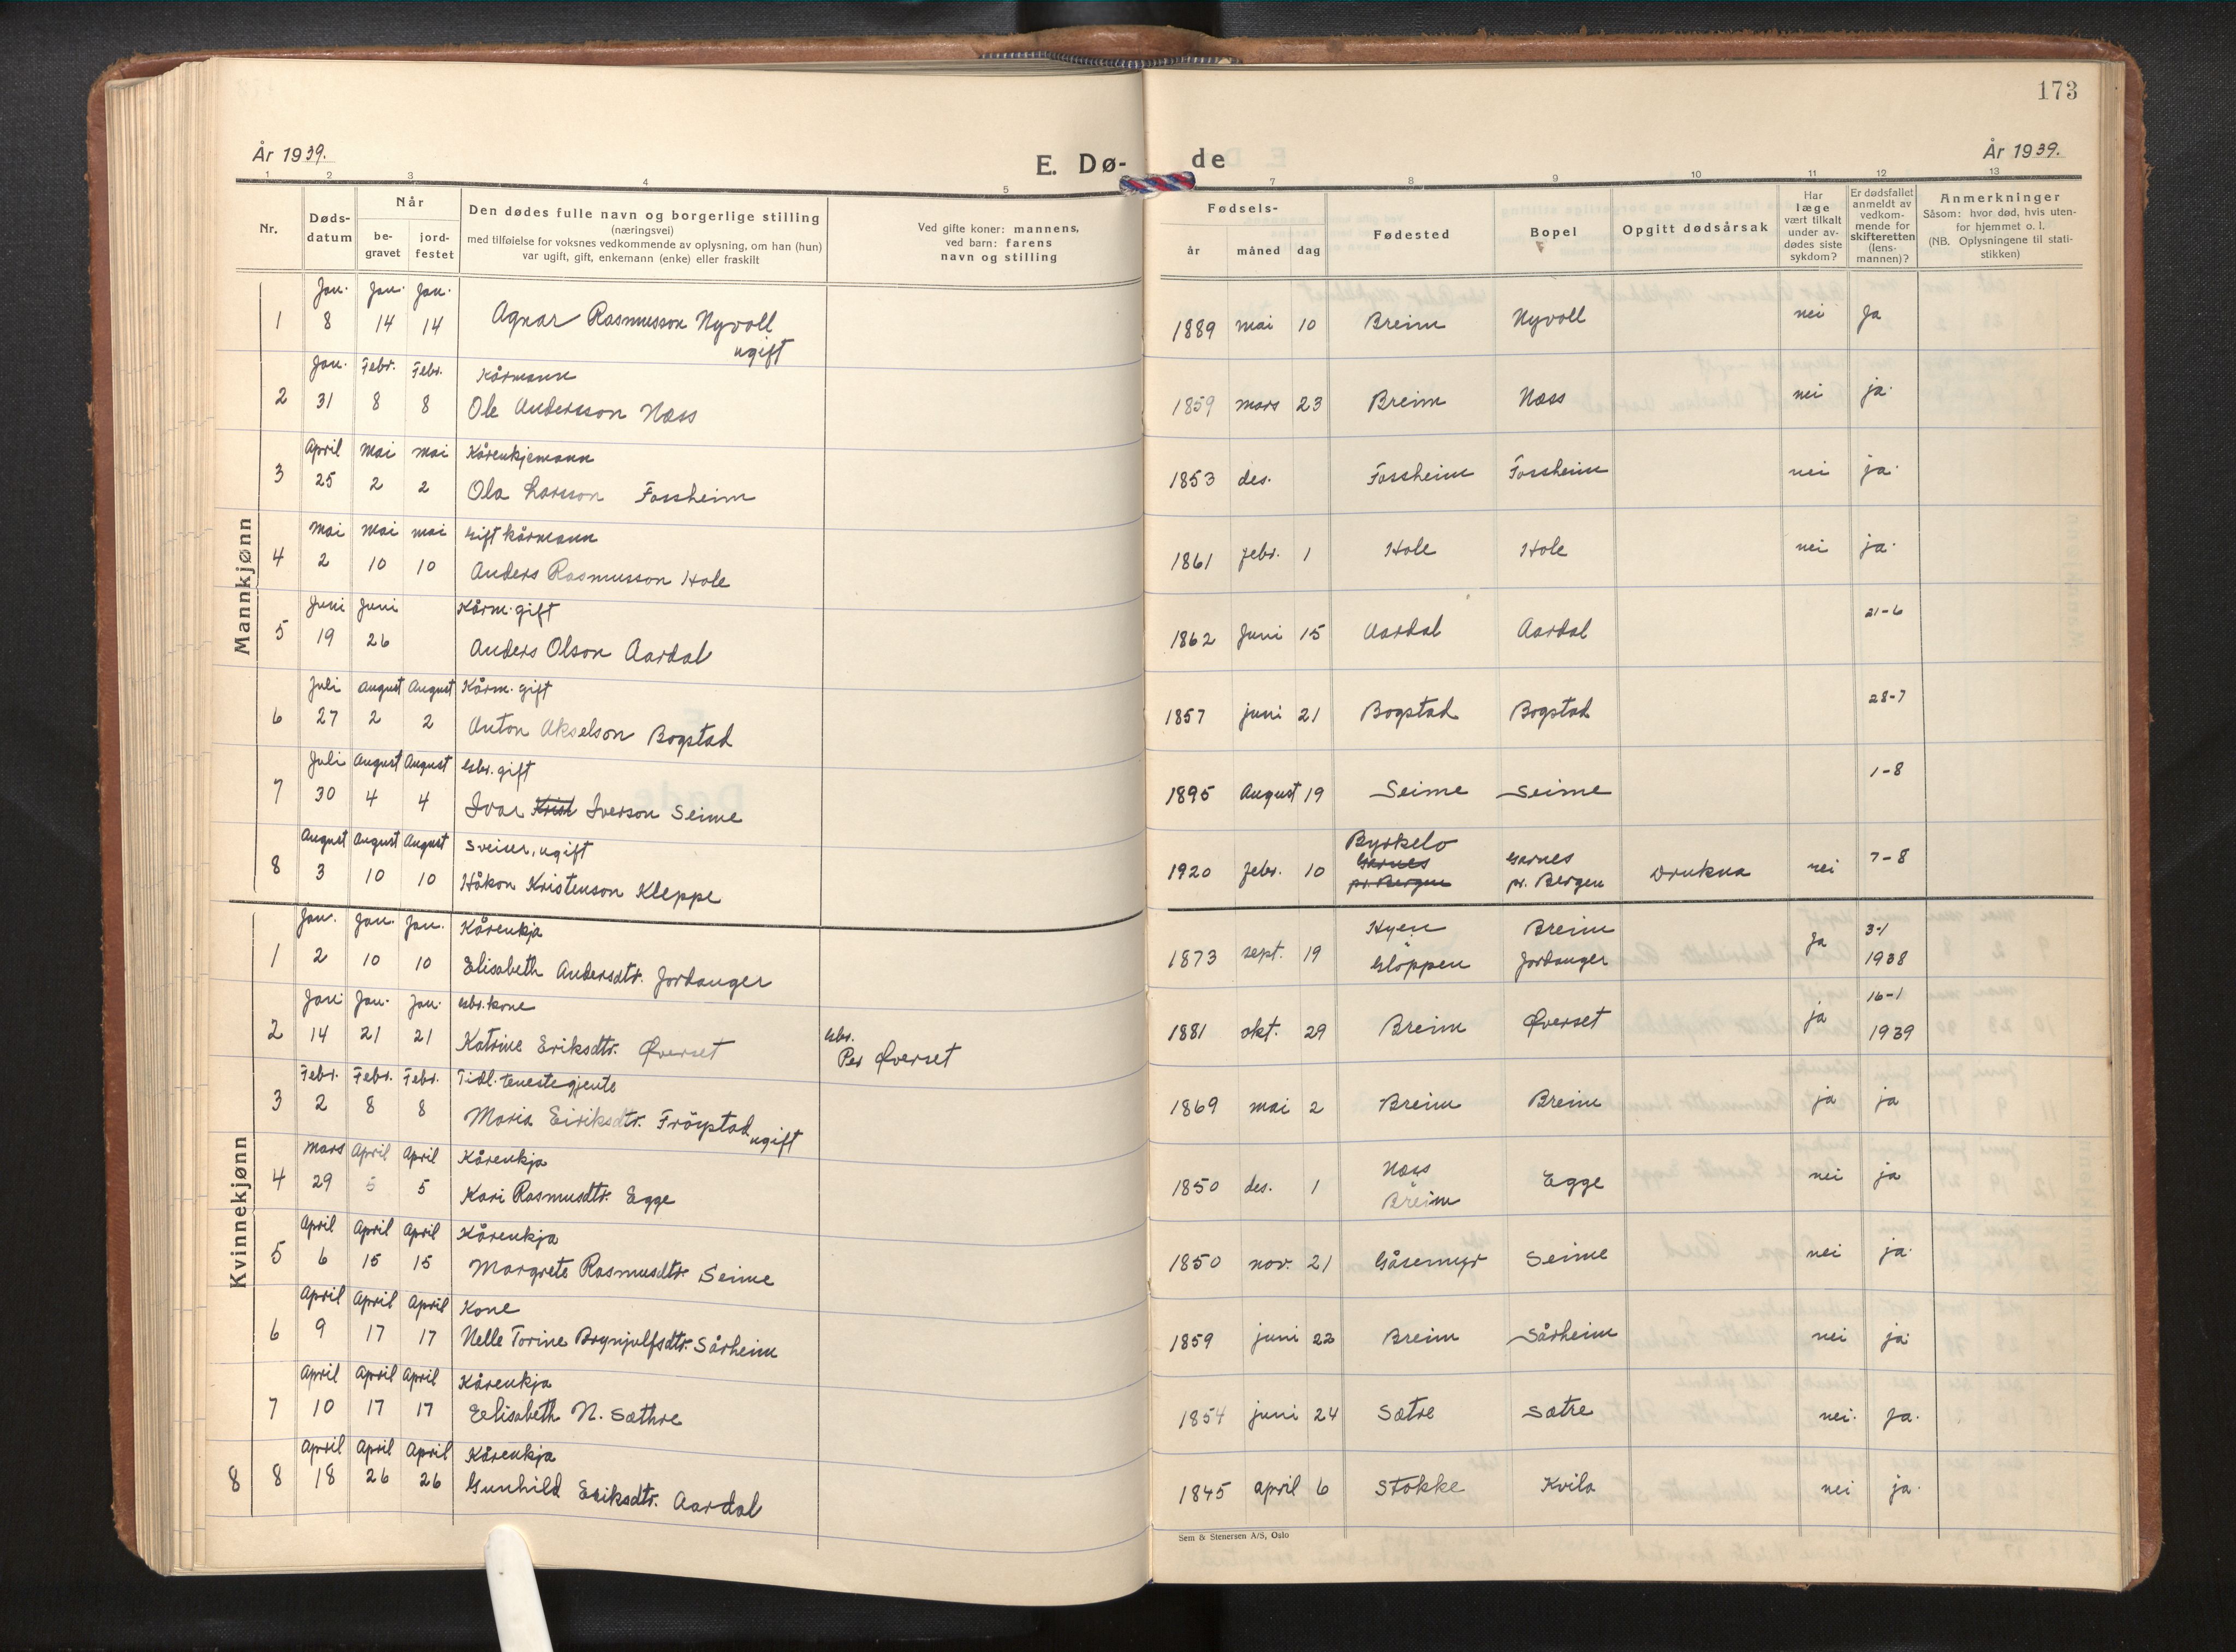 173
År 1939.
E. Dø-
de
År 1939.
1 2 3 4 5 7 8 9 10 11 12 13
Nr.
Døds-
datum
Når
be-
gravet
jord-
festet
Den dødes fulle navn og borgerlige stilling
(næringsvei)
med tilføielse for voksnes vedkommende av oplysning, om han (hun)
var ugift, gift, enkemann (enke) eller fraskilt
Ved gifte koner: mannens,
ved barn: farens
navn og stilling
Fødsels-
år måned dag
Fødested
Bopel
Opgitt dødsårsak
Har
læge
vært tilkalt
under av-
dødes siste
sykdom?
Er dødsfallet
anmeldt av
vedkom-
mende for
skifteretten
(lens-
mannen)?
Anmerkninger
Såsom: hvor død, hvis uten-
for hjemmet o. l.
(NB. Oplysningene til stati-
stikken)
Mannkjønn
Jan. Jan. Jan.
1 8 14 14 Agnar Rasmusson Nyvoll 1889 mai 10 Breim Nyvoll nei Ja
ugift
Jan. Febr. Febr. Kårmann
2 31 8 8 Ole Andersson Næss 1859 mars 23 Breim Næss nei ja.
April mai mai Kårenkjemann
3 25 2 2 Ola Larsson Fossheim 1853 des. Fossheim Fossheim nei ja.
mai mai mai Gift kårmann
4 2 10 10 Anders Rasmusson Hole 1861 febr. 1 Hole Hole nei ja.
Juni Juni Kårm. gift 21-6
5 19 26 Anders Olson Aardal 1862 Juni 15 Aardal Aardal
Juli August August Kårm. gift 28-7
6 27 2 2 Anton Akselson Bogstad 1857 juni 21 Bogstad Bogstad
Juli August August Gbr. gift 1-8
7 30 4 4 Ivar Krist Iverson Seime 1895 August 19 Seime Seime
August August August Sveiser, ugift Byrkelo
8 3 10 10 Håkon Kristenson Kleppe 1920 febr. 10 Garnes pr. Bergen Garnes pr. Bergen Drukna nei 7-8
Kvinnekjønn
Jan. Jan. Jan. Kårenkja Hyen Breim 3-1
1 2 10 10 Elisabeth Andersdtr. Jordanger 1873 sept. 19 Gloppen Jordanger Ja 1938
Jan Jan. Jan. Gbr. kone Gbr. 16-1
2 14 21 21 Katrine Eriksdtr. Øverset Per Øverset 1881 okt. 29 Breim Øverset ja 1939
Febr. Febr. Febr. Tidl. tenestegjente
3 2 8 8 Maria Eiriksdtr. Fröystad 1869 mai 2 Breim Breim ja ja
ugift
Mars April April Kårenkja Næss
4 29 5 5 Kari Rasmusdtr. Egge 1850 des. 1 Breim Egge nei ja
April April April Kårenkja
5 6 15 15 Margrete Rasmusdtr. Seime 1850 nov. 21 Gåsemyr Seime nei ja.
April April April Kone
6 9 17 17 Nelle Torine Brynjulfsdtr. Sårheim 1859 juni 22 Breim Sårheim nei ja.
April April April Kårenkja
7 10 17 17 Elisabeth N. Sæthre 1854 juni 24 Sætre Sætre nei. Ja.
April April April Kårenkja
8 8 18 26 26 Gunhild Eriksdtr. Aardal 1845 april 6 Stokke Kvila nei ja.
Sem & Stenersen A/S, Oslo